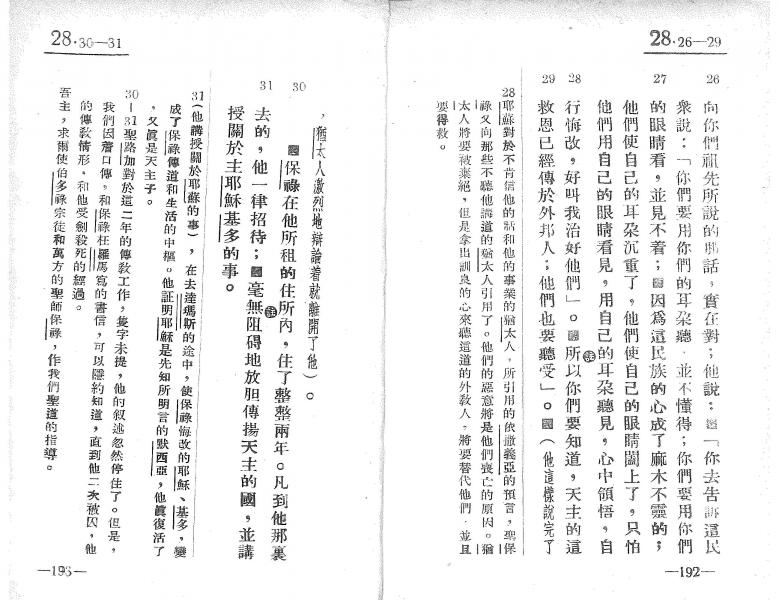 28·26—29
26
向你們祖先所說的那話，實在對；他說：㉖「你去告訴這民
衆說：「你們要用你們的耳朶聽，並不懂得；你們要用你們
27
的眼睛看，並見不着；㉗因爲這民族的心成了麻木不靈的；
他們使自己的耳朶沉重了，他們使自己的眼睛闔上了，只怕
他們用自己的眼睛看見，用自己的耳朶聽見，心中領悟，自
28
行悔改，好叫我治好他們」。㉘所以你們要知道，天主的這
29
救恩已經傳於外邦人；他們也要聽受」。㉙（他這樣說完了
28耶穌對於不肯信他的話和他的事業的猶太人，所引用的依撒義亞的預言，聖保
祿又向那些不聽他講道的猶太人引用了。他們的惡意將是他們喪亡的原因。猶
太人將要被棄絕，但是拿出訓良的心來聽這道的外敎人，將要替代他們，並且
要得救。
—192—
28·30—31
，猶太人激烈地辯論着就離開了他）。
30
㉚保祿在他所租的住所內，住了整整兩年。凡到他那裏
31
去的，他一律招待；㉛毫無阻碍地放胆傳揚天主的國，並講
授關於主耶穌基多的事。
31（他講授關於耶穌的事），在去達瑪斯的途中，使保祿悔改的耶穌、基多，變
成了保祿傳道和生活的中樞。他証明耶穌是先知所明言的默西亞，他眞復活了
，又眞是天主子。
30—31聖路加對於這二年的傳敎工作，隻字未提，他的叙述忽然停住了。但是，
我們因着口傳，和保祿在羅馬寫的書信，可以隱約知道，直到他二次被囚，他
的傳敎情形，和他受劍殺死的經過。
吾主，求爾使伯多祿宗徒和萬方的聖師保祿，作我們聖道的指導。
—193—